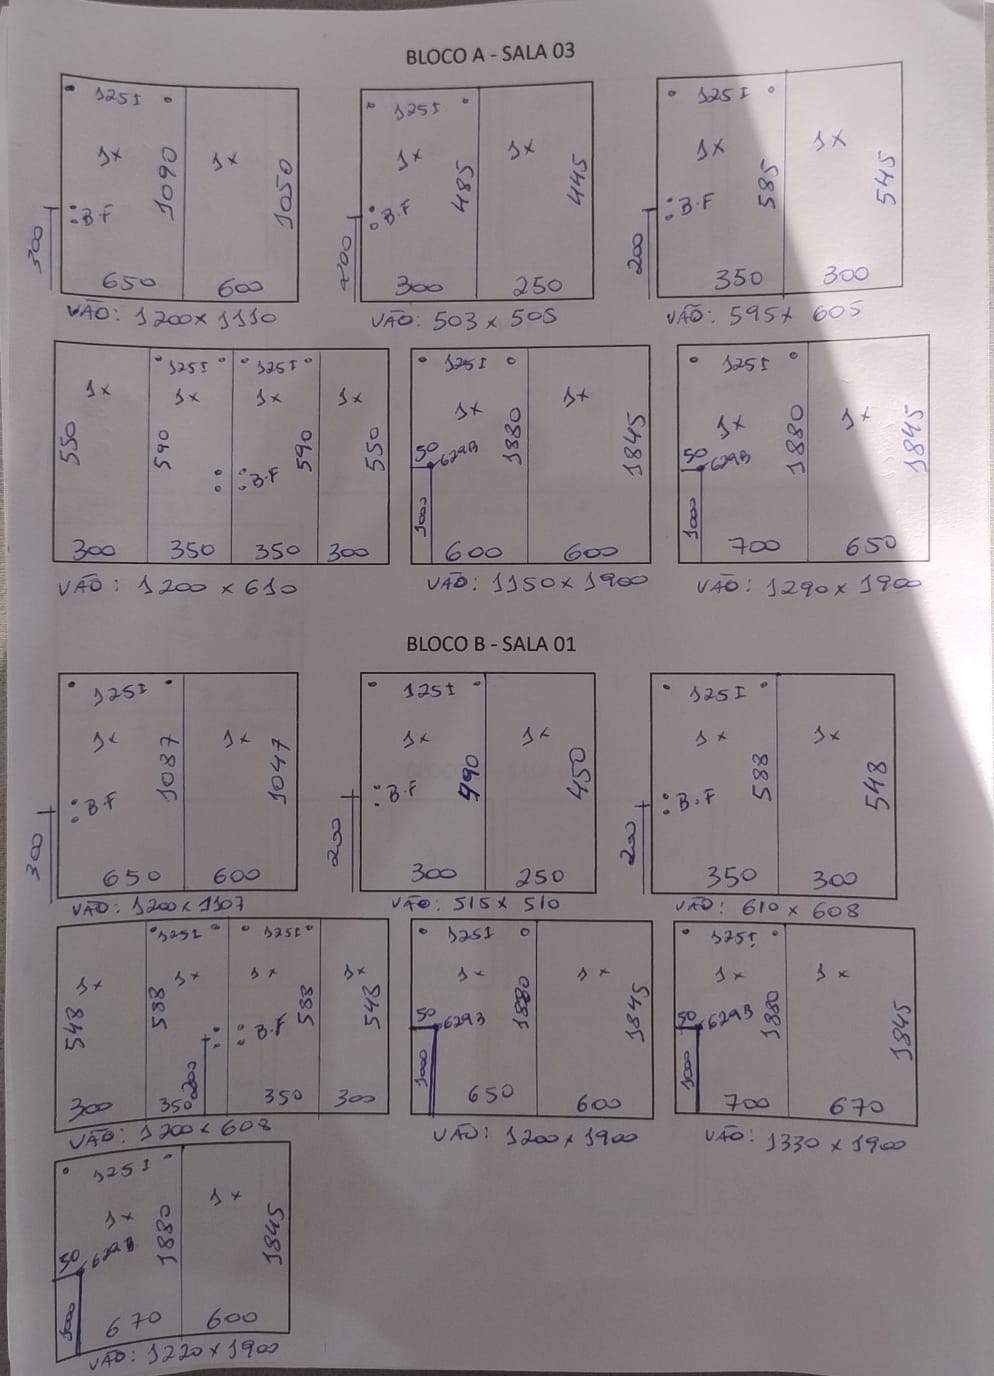 BLOCO A - SALA 03
125I
1x 1090 1x 1050
B.F
300
650 600
VÃO: 1200 x 1110
125I
1x 485 1x 445
B.F
200
300 250
VÃO: 503 x 505
125I
1x 585 1x 545
B.F
200
350 300
VÃO: 595 x 605
125I 125I
1x 1x 1x 1x
550 590 590 550
B.F
300 350 350 300
VÃO: 1200 x 610
125I
1x 1880 1x 1845
50 629B
1000
600 600
VÃO: 1150 x 1900
125I
1x 1880 1x 1845
50 629B
1000
700 650
VÃO: 1290 x 1900
BLOCO B - SALA 01
125I
1x 1087 1x 1047
B.F
300
650 600
VÃO: 1200 x 1107
125I
1x 490 1x 450
B.F
200
300 250
VÃO: 515 x 510
125I
1x 588 1x 548
B.F
200
350 300
VÃO: 610 x 608
125I 125I
1x 1x 1x 1x
548 588 588 548
B.F
200
300 350 350 300
VÃO: 1200 x 608
125I
1x 1880 1x 1845
50 629B
1000
650 600
VÃO: 1200 x 1900
125I
1x 1880 1x 1845
50 629B
1000
700 670
VÃO: 1330 x 1900
125I
1x 1880 1x 1845
50 629B
1000
670 600
VÃO: 1220 x 1900